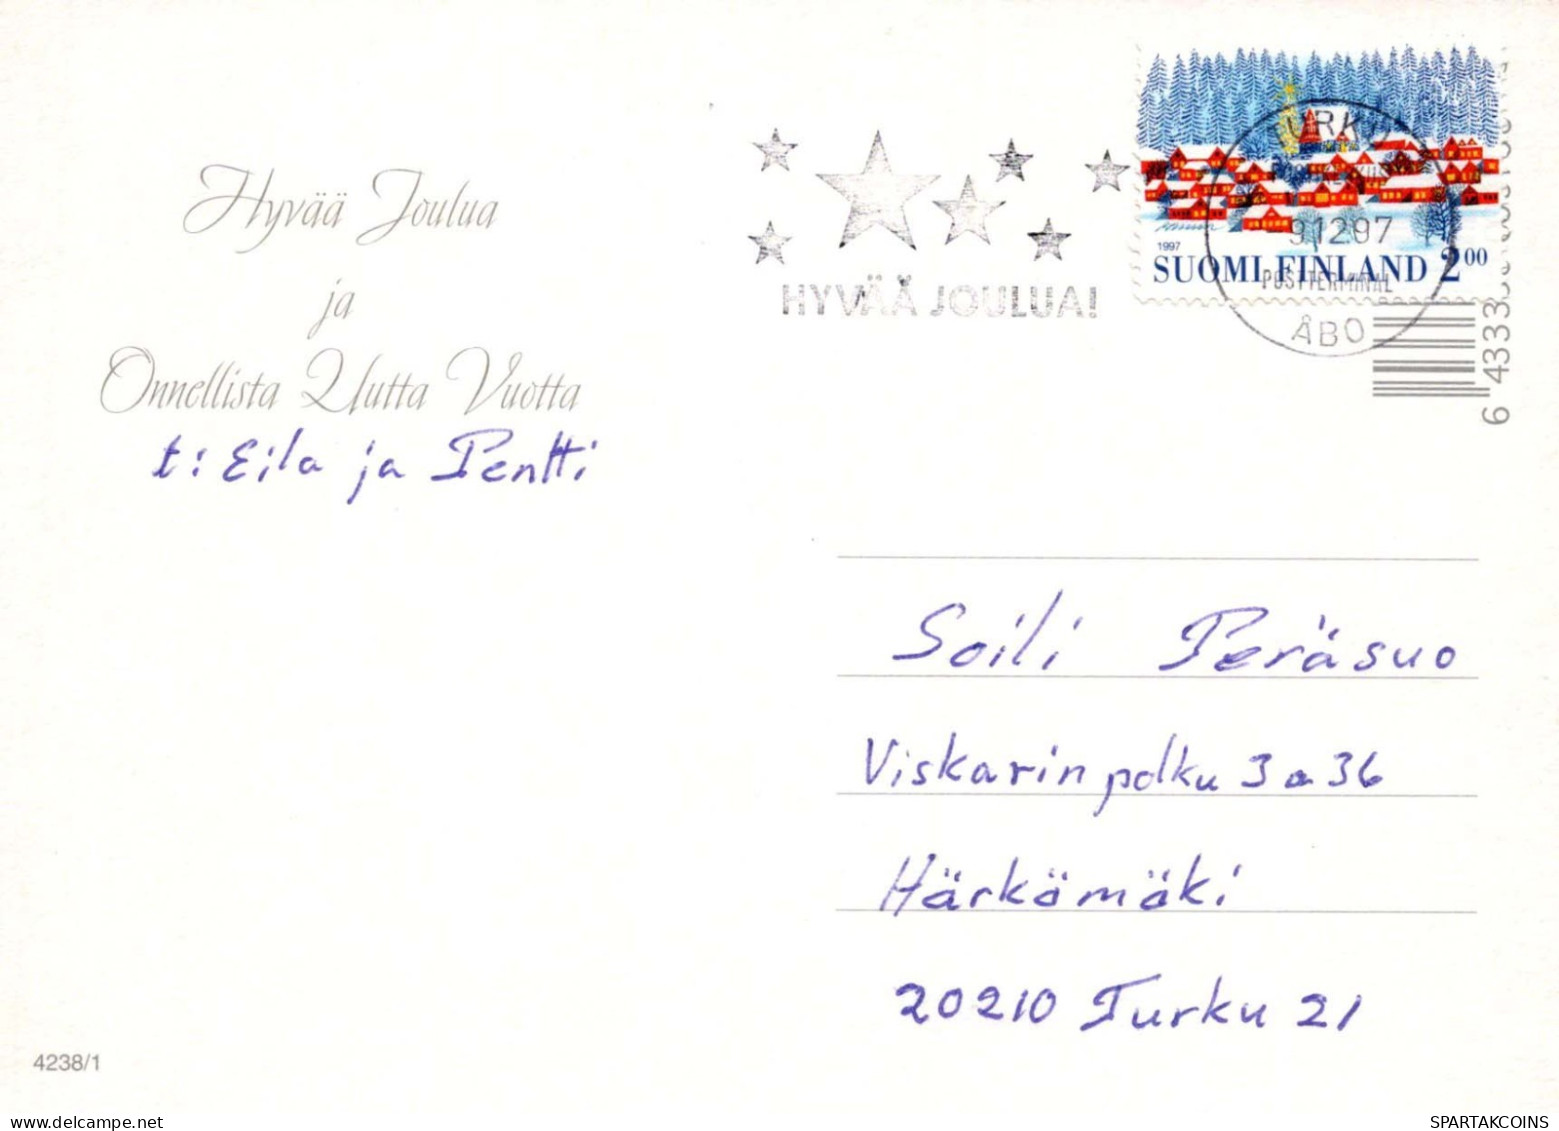 Hyvää Joulua
ja
Onnellista Uutta Vuotta
t: Eila ja Pentti
4238/1
HYVÄÄ JOULUA!
1997
SUOMI FINLAND 2.00
TURKU
91297
POSTTERMINAL
ÅBO
6 43333
Soili Peräsuo
Viskarinpolku 3 a 36
Härkämäki
20210 Turku 21
SPARTAKCOINS